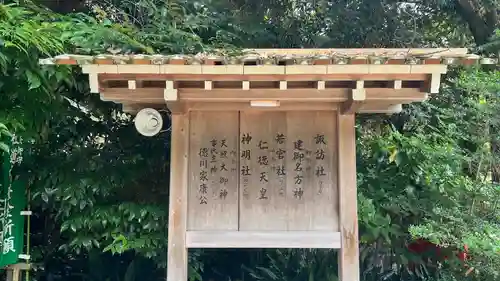 諏訪社
建御名方神
若宮社
仁徳天皇
神明社
天照大御神
徳川家康公
祈願